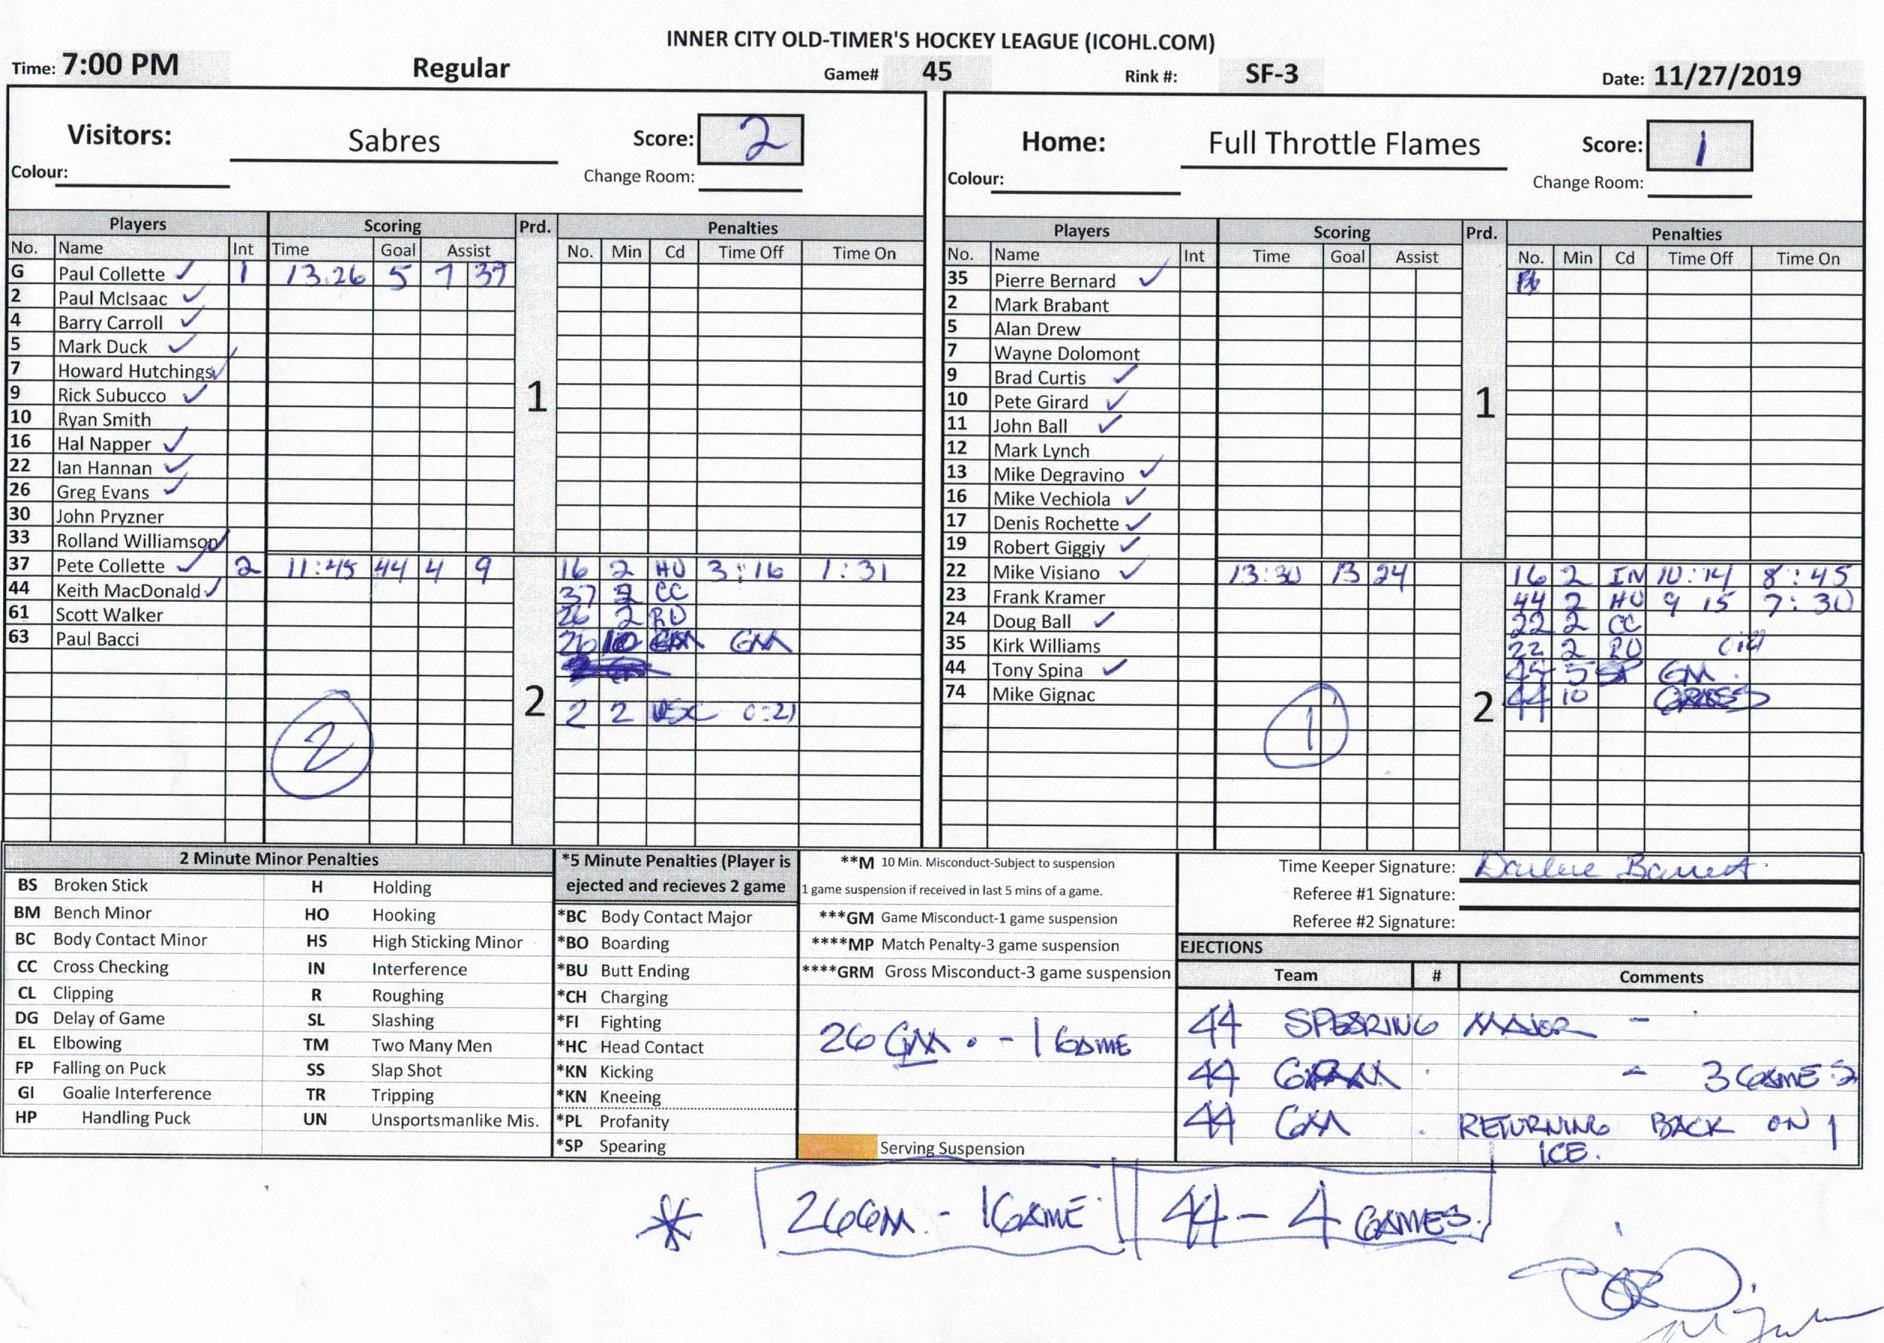 INNER CITY OLD-TIMER'S HOCKEY LEAGUE (ICOHL.COM)
Time: 7:00 PM Regular Game# 45 Rink #: SF-3 Date: 11/27/2019
Visitors: Sabres Score: 2
Colour: Change Room:
Players Scoring Prd. Penalties
No. Name Int Time Goal Assist No. Min Cd Time Off Time On
G Paul Collette ✓ 1 13:26 5 7 37
2 Paul McIsaac ✓
4 Barry Carroll ✓
5 Mark Duck ✓
7 Howard Hutchings ✓
9 Rick Subucco ✓
1
10 Ryan Smith
16 Hal Napper ✓
22 Ian Hannan ✓
26 Greg Evans ✓
30 John Pryzner
33 Rolland Williamson ✓
37 Pete Collette ✓ 2 11:45 44 4 9 16 2 HO 3:16 1:31
44 Keith MacDonald ✓ 37 2 CC
61 Scott Walker 26 2 RO
63 Paul Bacci 26 10 GM
2
2 2 0:21
2
Home: Full Throttle Flames Score: 1
Colour: Change Room:
Players Scoring Prd. Penalties
No. Name Int Time Goal Assist No. Min Cd Time Off Time On
35 Pierre Bernard ✓
2 Mark Brabant
5 Alan Drew
7 Wayne Dolomont
9 Brad Curtis ✓
10 Pete Girard ✓
1
11 John Ball ✓
12 Mark Lynch
13 Mike Degravino ✓
16 Mike Vechiola ✓
17 Denis Rochette ✓
19 Robert Giggiy ✓
22 Mike Visiano ✓ 13:30 13 24 16 2 IN 10:14 8:45
23 Frank Kramer 44 2 HO 9 15 7:30
24 Doug Ball ✓ 22 2 CC
35 Kirk Williams 22 2 RO
44 Tony Spina ✓ 44 5 SP GM
74 Mike Gignac 44 10
2
1
2 Minute Minor Penalties
BS Broken Stick H Holding
BM Bench Minor HO Hooking
BC Body Contact Minor HS High Sticking Minor
CC Cross Checking IN Interference
CL Clipping R Roughing
DG Delay of Game SL Slashing
EL Elbowing TM Two Many Men
FP Falling on Puck SS Slap Shot
GI Goalie Interference TR Tripping
HP Handling Puck UN Unsportsmanlike Mis.
*5 Minute Penalties (Player is
ejected and recieves 2 game
*BC Body Contact Major
*BO Boarding
*BU Butt Ending
*CH Charging
*FI Fighting
*HC Head Contact
*KN Kicking
*KN Kneeing
*PL Profanity
*SP Spearing
**M 10 Min. Misconduct-Subject to suspension
1 game suspension if received in last 5 mins of a game.
***GM Game Misconduct-1 game suspension
****MP Match Penalty-3 game suspension
****GRM Gross Misconduct-3 game suspension
26 GM. - 1 GAME
Serving Suspension
Time Keeper Signature: Darlene Barrett
Referee #1 Signature:
Referee #2 Signature:
EJECTIONS
Team # Comments
44 SPEARING MAJOR -
44 GRM - 3 GAMES
44 GM RETURNING BACK ON 1
ICE.
* 26 GM. - 1 GAME 44 - 4 GAMES.